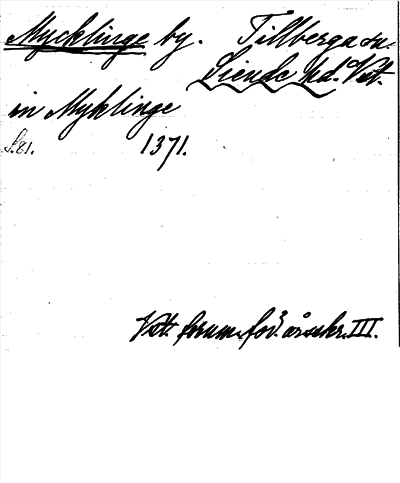 Mycklinge by. Tillberga sn.
Siende hd. Vst.
in Myklinge
S. 81. 1371.
Vst. fornm. för. årsskr. III.